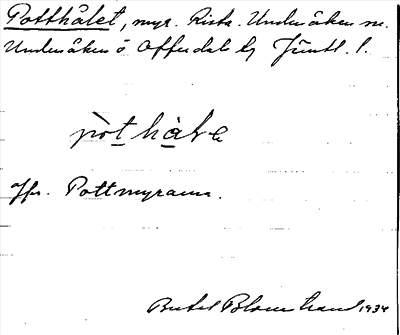 Potthålet, myr. Rista. Undersåkers sn.
Undersåkers o Offerdals tg Jämtl. l.
pòt hàle
Jfr. Pottmyrarna.
Bertil Blomstrand 1934